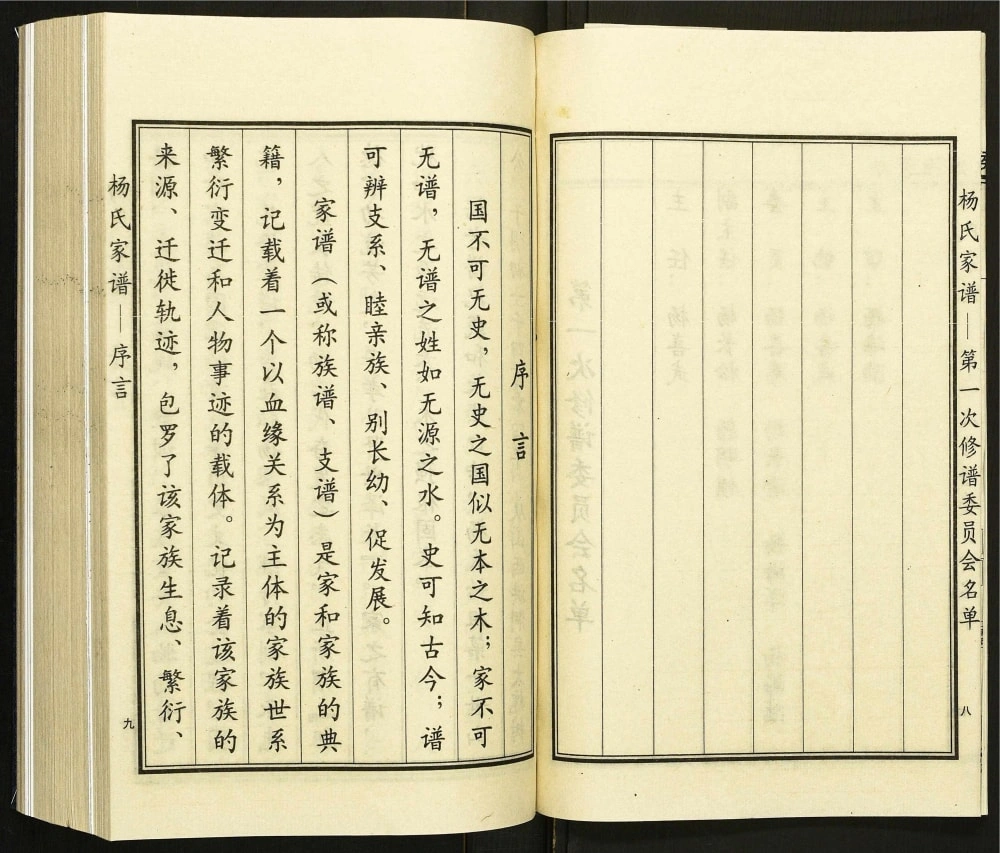 杨氏家谱—第一次修谱委员会名单
八
序言
国不可无史，无史之国似无本之木；家不可
无谱，无谱之姓如无源之水。史可知古今；谱
可辨支系、睦亲族、别长幼、促发展。
家谱（或称族谱、支谱）是家和家族的典
籍，记载着一个以血缘关系为主体的家族世系
繁衍变迁和人物事迹的载体。记录着该家族的
来源、迁徙轨迹，包罗了该家族生息、繁衍、
杨氏家谱—序言
九